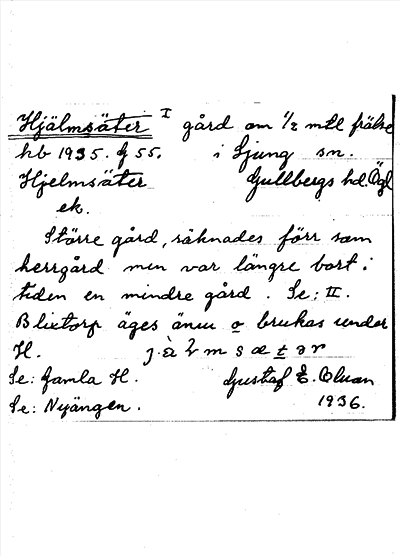 Hjälmsäter I gård om 1/2 mtl frälse
hb 1935. f 55. i Ljung sn.
Hjelmsäter Gullbergs hd. Ögl
ek.
Större gård, räknades förr som
herrgård men var längre bort i
tiden en mindre gård. Se: II.
Blixtorp äges ännu o brukas under
H. j.à m s æ t ə r
Se: Gamla H. Gustaf E.
Se: Nyängen. 1936.